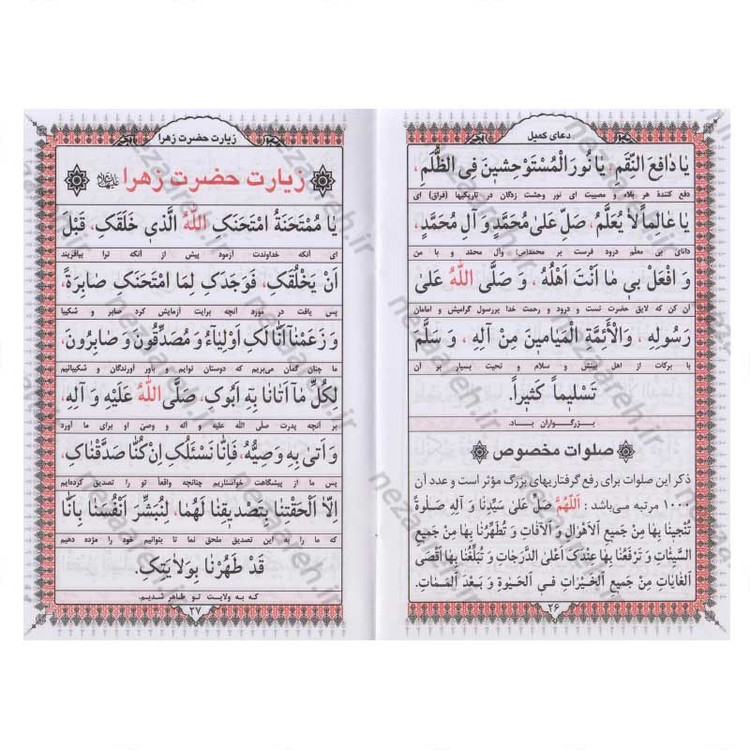 دعای کمیل
یا دافِعَ النِّقَمِ، یا نُورَ الْمُسْتَوْحِشینَ فِی الظُّلَمِ،
دفع کنندهٔ هر بلاء و مصیبت ای نور وحشت زدگان در تاریکیها (فراق) ای
یا عالِماً لا یُعَلَّمُ، صَلِّ عَلیٰ مُحَمَّدٍ وَ آلِ مُحَمَّدٍ،
دانای بی معلّم درود فرست بر محمد(ص) وآل محمّد و با من
وَ افْعَلْ بی ما اَنْتَ اَهْلُهُ، وَ صَلَّی اللّٰهُ عَلیٰ
آن کن که لایق حضرت تست و درود و رحمت خدا بررسول گرامیش و امامان
رَسُولِهِ، وَالْاَئِمَّةِ الْمَیامینَ مِنْ آلِهِ، وَ سَلَّمَ
با برکات از اهل بیتش و سلام و تحیت بسیار بر آن
تَسْلیماً کَثیراً.
بزرگواران باد.
صلوات مخصوص
ذکر این صلوات برای رفع گرفتاریهای بزرگ مؤثر است و عدد آن
۱۰۰۰ مرتبه می‌باشد: اَللّٰهُمَّ صَلِّ عَلیٰ سَیِّدِنٰا وَ آلِهِ صَلوٰةً
تُنْجینٰا بِهٰا مِنْ جَمیعِ اْلاَهْوٰالِ وَ اْلآفٰاتِ وَ تُطَهِّرُنٰا بِهٰا مِنْ جَمیعِ
السَّیِّئٰاتِ وَ تَرْفَعُنٰا بِهٰا عِنْدَکَ اَعْلَی الدَّرَجٰاتِ وَ تُبَلِّغُنٰا بِهٰا اَقْصَی
الْغٰایٰاتِ مِنْ جَمیعِ الْخَیْرٰاتِ فِی الْحَیٰوةِ وَ بَعْدَ الْمَمٰاتِ.
۲۶
زیارت حضرت زهرا
زیارت حضرت زهرا
یا مُمْتَحَنَةُ امْتَحَنَکِ اللّٰهُ الَّذی خَلَقَکِ، قَبْلَ
ای آنکه خداوندت آزمود پیش از آنکه ترا بیافریند
اَنْ یَخْلُقَکِ، فَوَجَدَکِ لِمَا امْتَحَنَکِ صابِرَةً،
پس یافت در مورد آنچه برایت آزمایش کرد صابر و شکیبا
وَ زَعَمْنا اَنّا لَکِ اَوْلِیاءُ وَ مُصَدِّقُونَ وَ صابِرُونَ،
ما چنان گمان می‌بریم که دوستان توایم و باور آورندگان و شکیبائیم
لِکُلِّ ما اَتانا بِهِ اَبُوکِ، صَلَّی اللّٰهُ عَلَیْهِ وَ آلِهِ،
بر آنچه پدرت صلی الله علیه و آله و وصیّ او برای ما آورد
وَ اَتیٰ بِهِ وَصِیُّهُ، فَاِنّا نَسْئَلُکِ اِنْ کُنّا صَدَّقْناکِ،
پس ما از پیشگاهت خواستاریم چنانچه واقعاً تو را تصدیق کرده‌ایم
اِلاّ اَلْحَقْتِنا بِتَصْدیقِنا لَهُما، لِنُبَشِّرَ اَنْفُسَنا بِاَنّا
که ما را به این تصدیق ملحق نما تا بتوانیم خود را مژده دهیم
قَدْ طَهُرْنا بِوَلایَتِکِ.
که به ولایت تو طاهر شدیم.
۲۷
nezaareh.ir